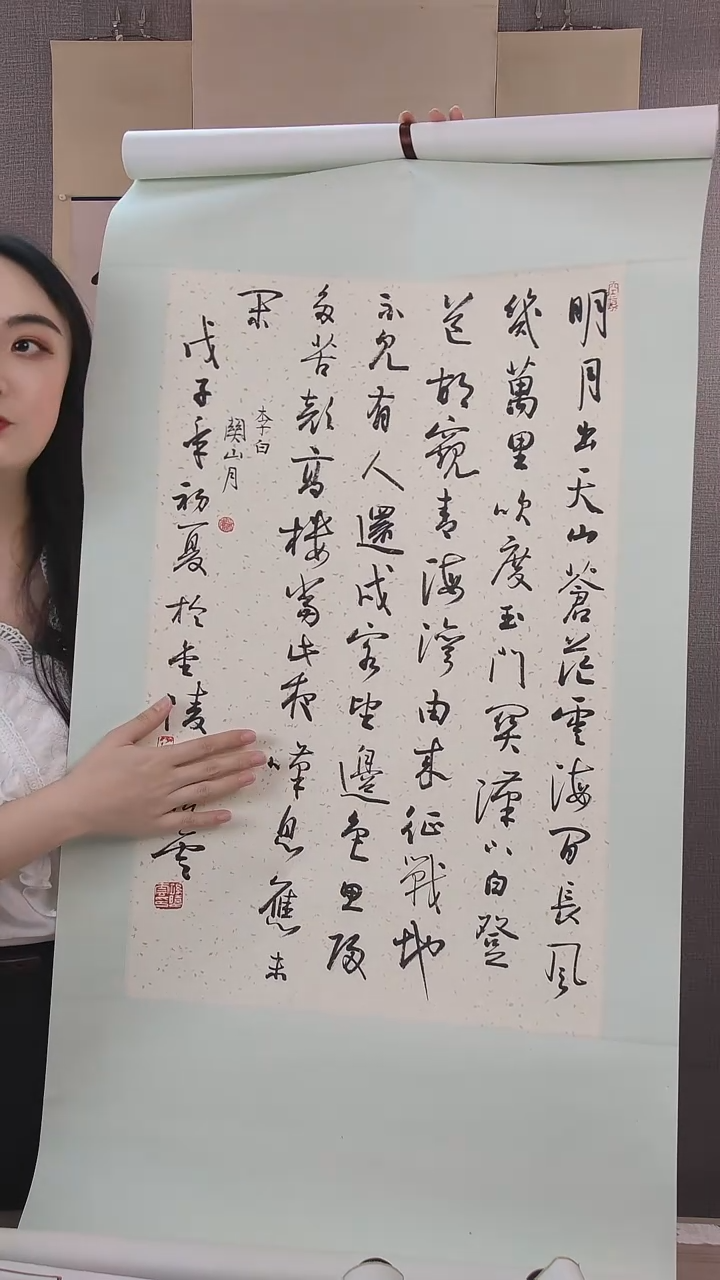 明月出天山蒼茫雲海間長風
幾萬里吹度玉門関漢下白登
道胡窺青海灣由来征戰地
不見有人還戍客望邊色思歸
多苦顔高樓當此夜嘆息應未
閑
李白
關山月
戊子年初夏於金陵雲